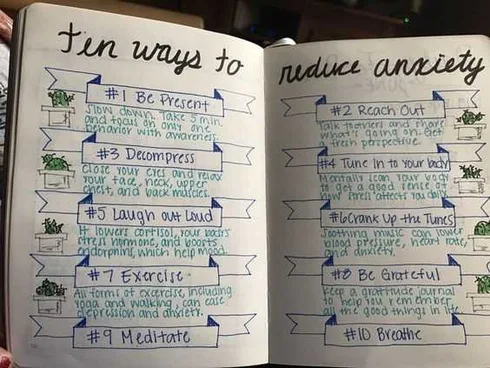 ten ways to reduce anxiety
#1 Be Present
Slow down. Take 5 min.
and focus on only one
behavior with awareness.
#2 Reach Out
Talk to others and share
what's going on. Get
a fresh perspective.
#3 Decompress
Close your eyes and relax
your face, neck, upper
chest, and back muscles.
#4 Tune In to your body
Mentally scan your body
to get a good sense of
how stress affects you daily.
#5 Laugh out Loud
It lowers cortisol, your body's
stress hormone, and boosts
endorphins, which help mood.
#6 Crank Up the Tunes
Soothing music can lower
blood pressure, heart rate,
and anxiety.
#7 Exercise
All forms of exercise, including
yoga and walking, can ease
depression and anxiety.
#8 Be Grateful
Keep a gratitude journal
to help you remember
all the good things in life.
#9 Meditate
#10 Breathe